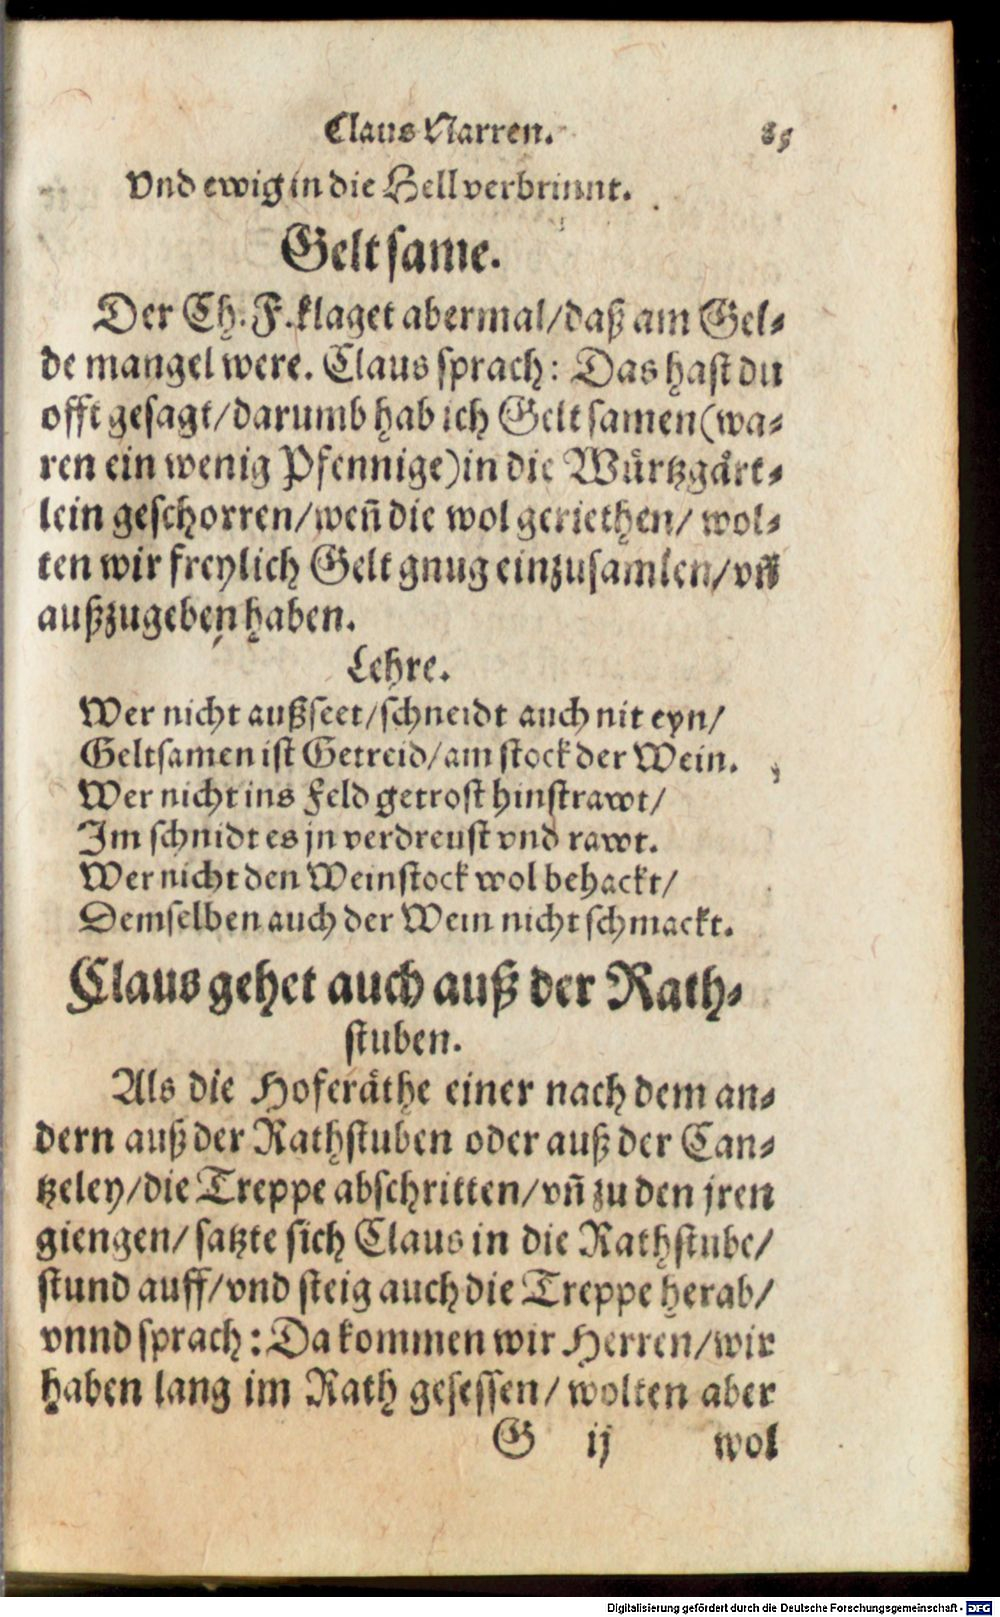 Claus Narren. 85
Vnd ewig in die Hell verbrinnt.
Gelt same.
Der Ch. F. klaget abermal/daß am Gel-
de mangel were. Claus sprach: Das hast du
offt gesagt/darumb hab ich Gelt samen(wa-
ren ein wenig Pfennige)in die Wuͤrtzgaͤrt-
lein geschorren/wen̄ die wol geriethen/ wol-
ten wir freylich Gelt gnug einzusamlen/vn̄
außzugeben haben.
Lehre.
Wer nicht außseet/schneidt auch nit eyn/
Geltsamen ist Getreid/am stock der Wein.
Wer nicht ins Feld getrost hinstrawt/
Im schnidt es jn verdreust vnd rawt.
Wer nicht den Weinstock wol behackt/
Demselben auch der Wein nicht schmackt.
Claus gehet auch auß der Rath-
stuben.
Als die Hoferaͤthe einer nach dem an-
dern auß der Rathstuben oder auß der Can-
tzeley/die Treppe abschritten/vn̄ zu den jren
giengen/ satzte sich Claus in die Rathstube/
stund auff/vnd steig auch die Treppe herab/
vnnd sprach: Da kommen wir Herren/wir
haben lang im Rath gesessen/ wolten aber
G ij wol
Digitalisierung gefördert durch die Deutsche Forschungsgemeinschaft - DFG